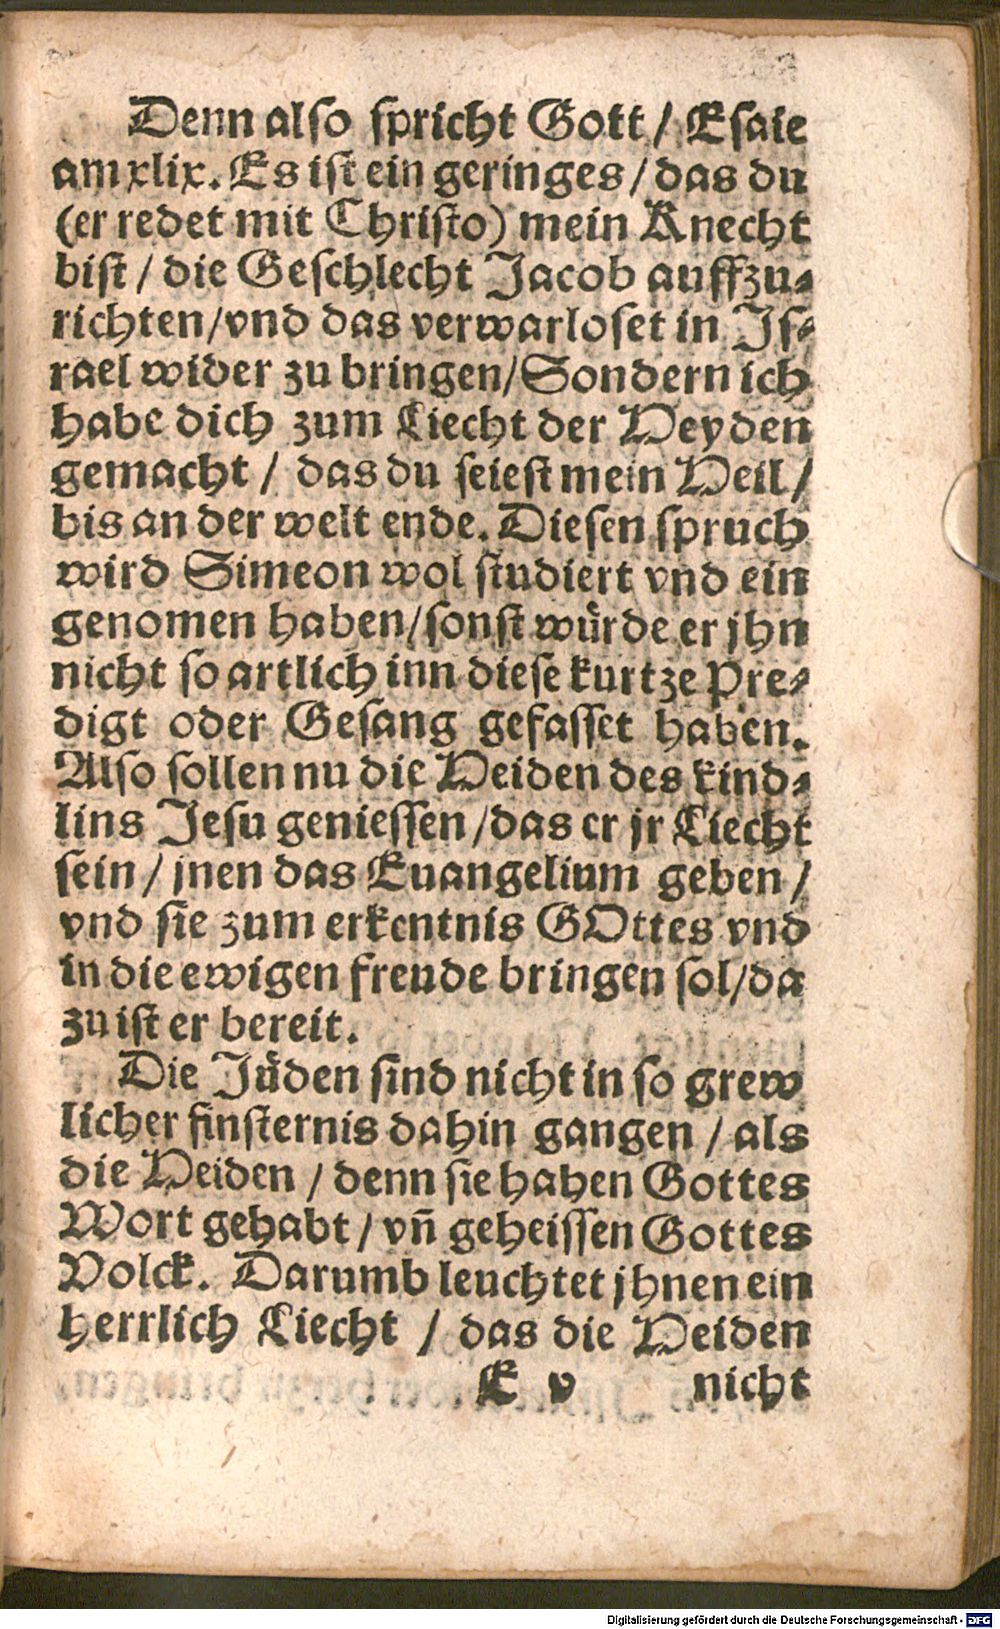 Denn also spricht Gott / Esaie
am xlix. Es ist ein geringes / das du
(er redet mit Christo) mein Knecht
bist / die Geschlecht Jacob auffzu⸗
richten/vnd das verwarloset in Js⸗
rael wider zu bringen/Sondern ich
habe dich zum Liecht der Heyden
gemacht / das du seiest mein Heil /
bis an der welt ende. Diesen spruch
wird Simeon wol studiert vnd ein
genomen haben/sonst wuͤrde er jhn
nicht so artlich inn diese kurtze Pre⸗
digt oder Gesang gefasset haben.
Also sollen nu die Heiden des kind⸗
lins Jesu geniessen/das er jr Liecht
sein / jnen das Euangelium geben /
vnd sie zum erkentnis GOttes vnd
in die ewigen freude bringen sol/da
zu ist er bereit.
Die Juͤden sind nicht in so grew
licher finsternis dahin gangen / als
die Heiden / denn sie haben Gottes
Wort gehabt / vn̄ geheissen Gottes
Volck. Darumb leuchtet jhnen ein
herrlich Liecht / das die Heiden
E v nicht
Digitalisierung gefördert durch die Deutsche Forschungsgemeinschaft - DFG